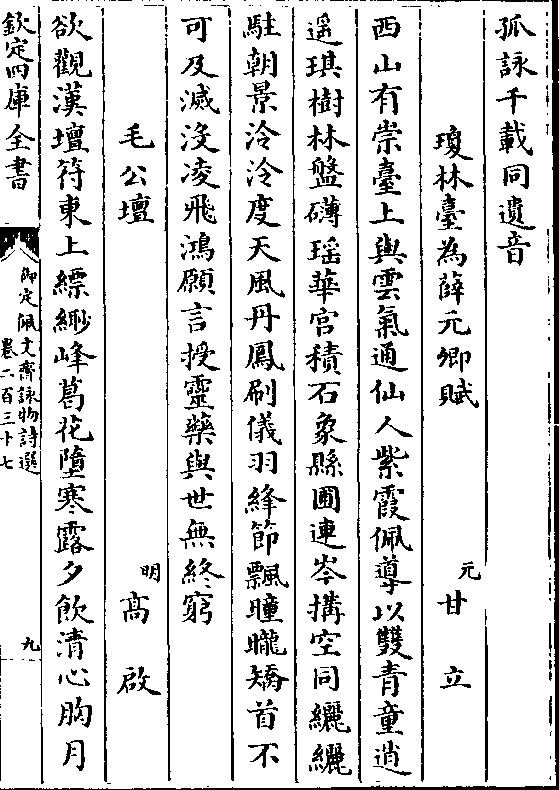 孤詠千載同遺音
瓊林臺為薛元卿賦
元 甘立
西山有崇臺上與雲氣通仙人紫霞佩導以雙青童逍
遥琪樹林盤礴瑶華宫積石象縣圃連岑搆空同纚纚
駐朝景泠泠度天風丹鳳刷儀羽絳節飄曈曨矯首不
可及滅没凌飛鴻願言授靈藥與世無終窮
毛公壇
明 髙啟
欲觀漢壇符東上縹緲峰葛花墮寒露夕飲清心胸月
欽定四庫全書
御定佩文齋詠物詩選
卷二百三十七
九